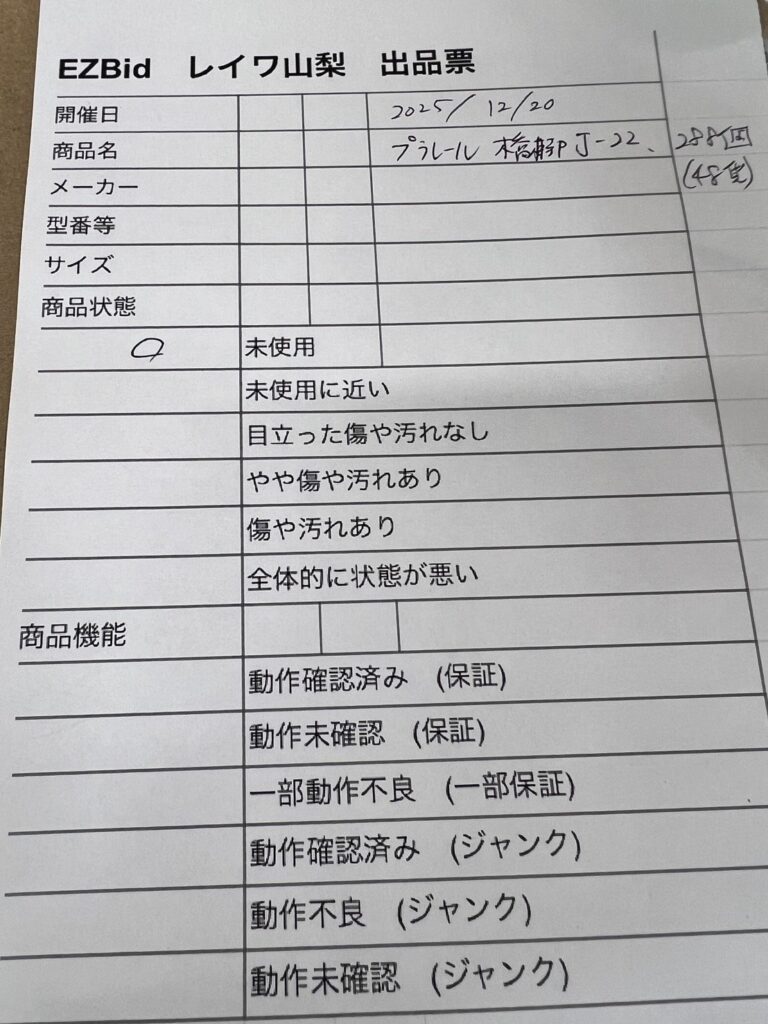 EZBid レイワ山梨 出品票
開催日 2025/12/20
商品名 プラレール 橋脚 J-22、288個
(48袋)
メーカー
型番等
サイズ
商品状態
○ 未使用
未使用に近い
目立った傷や汚れなし
やや傷や汚れあり
傷や汚れあり
全体的に状態が悪い
商品機能
動作確認済み (保証)
動作未確認 (保証)
一部動作不良 (一部保証)
動作確認済み (ジャンク)
動作不良 (ジャンク)
動作未確認 (ジャンク)